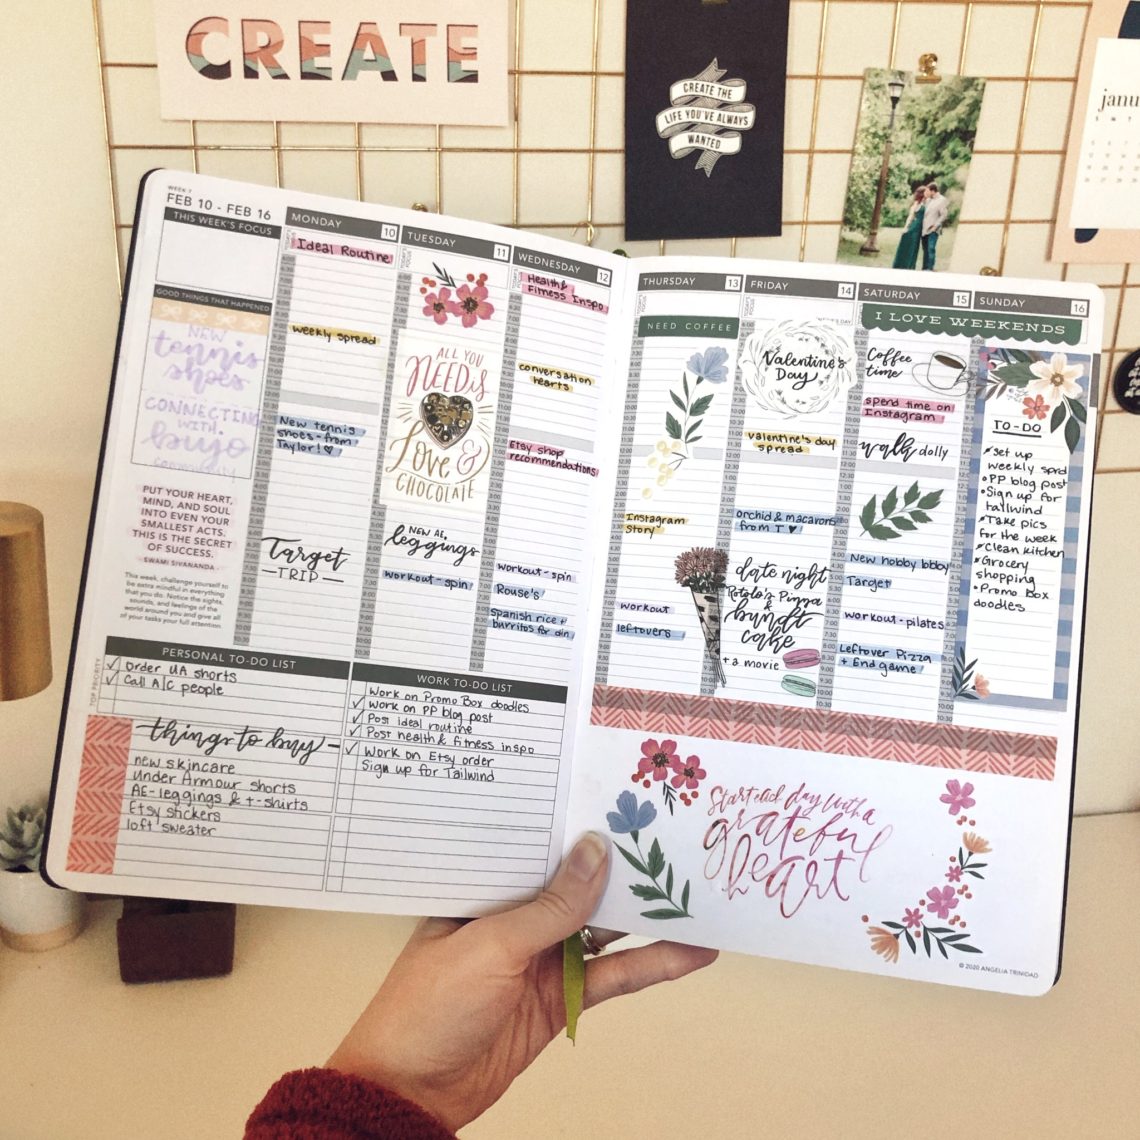 CREATE
CREATE THE
LIFE YOU'VE ALWAYS
WANTED
janu
WEEK 7
FEB 10 - FEB 16
THIS WEEK'S FOCUS
GOOD THINGS THAT HAPPENED
NEW
tennis
shoes
CONNECTING
WITH
bujo
community
PUT YOUR HEART,
MIND, AND SOUL
INTO EVEN YOUR
SMALLEST ACTS.
THIS IS THE SECRET
OF SUCCESS.
- SWAMI SIVANANDA -
This week, challenge yourself to
be extra mindful in everything
that you do. Notice the sights,
sounds, and feelings of the
world around you and give all
of your tasks your full attention.
MONDAY 10
Ideal Routine
weekly spread
New tennis
shoes - from
Taylor! ♡
Target
TRIP
TUESDAY 11
ALL YOU
NEED is
Love &
CHOCOLATE
NEW AE
leggings
workout - spin
WEDNESDAY 12
Health &
Fitness Inspo
conversation
hearts
Etsy shop
recommendations
workout - spin
Rouse's
Spanish rice +
burritos for din
PERSONAL TO-DO LIST
TOP PRIORITY
✓ Order UA shorts
✓ Call A/C people
things to buy
new skincare
Under Armour shorts
AE - leggings & t-shirts
Etsy stickers
loft sweater
WORK TO-DO LIST
Work on Promo Box doodles
✓ Work on PP blog post
✓ Post ideal routine
✓ Post health & fitness inspo
✓ Work on Etsy order
Sign up for Tailwind
THURSDAY 13
NEED COFFEE
Instagram
Story
workout
leftovers
FRIDAY 14
Valentine's
Day
valentine's day
spread
orchid & macarons
from T ♥
date night
Rotolo's Pizza
&
bundt
cake
+ a movie
SATURDAY 15
I LOVE WEEKENDS
Coffee
time
spend time on
Instagram
walk dolly
New hobby lobby
Target
workout - pilates
Leftover Pizza
+ End game
SUNDAY 16
TO-DO
Set up
weekly sprd
PP blog post
Sign up for
tailwind
Take pics
for the week
Clean kitchen
Grocery
shopping
Promo Box
doodles
Start each day with a
grateful
heart
© 2020 ANGELIA TRINIDAD